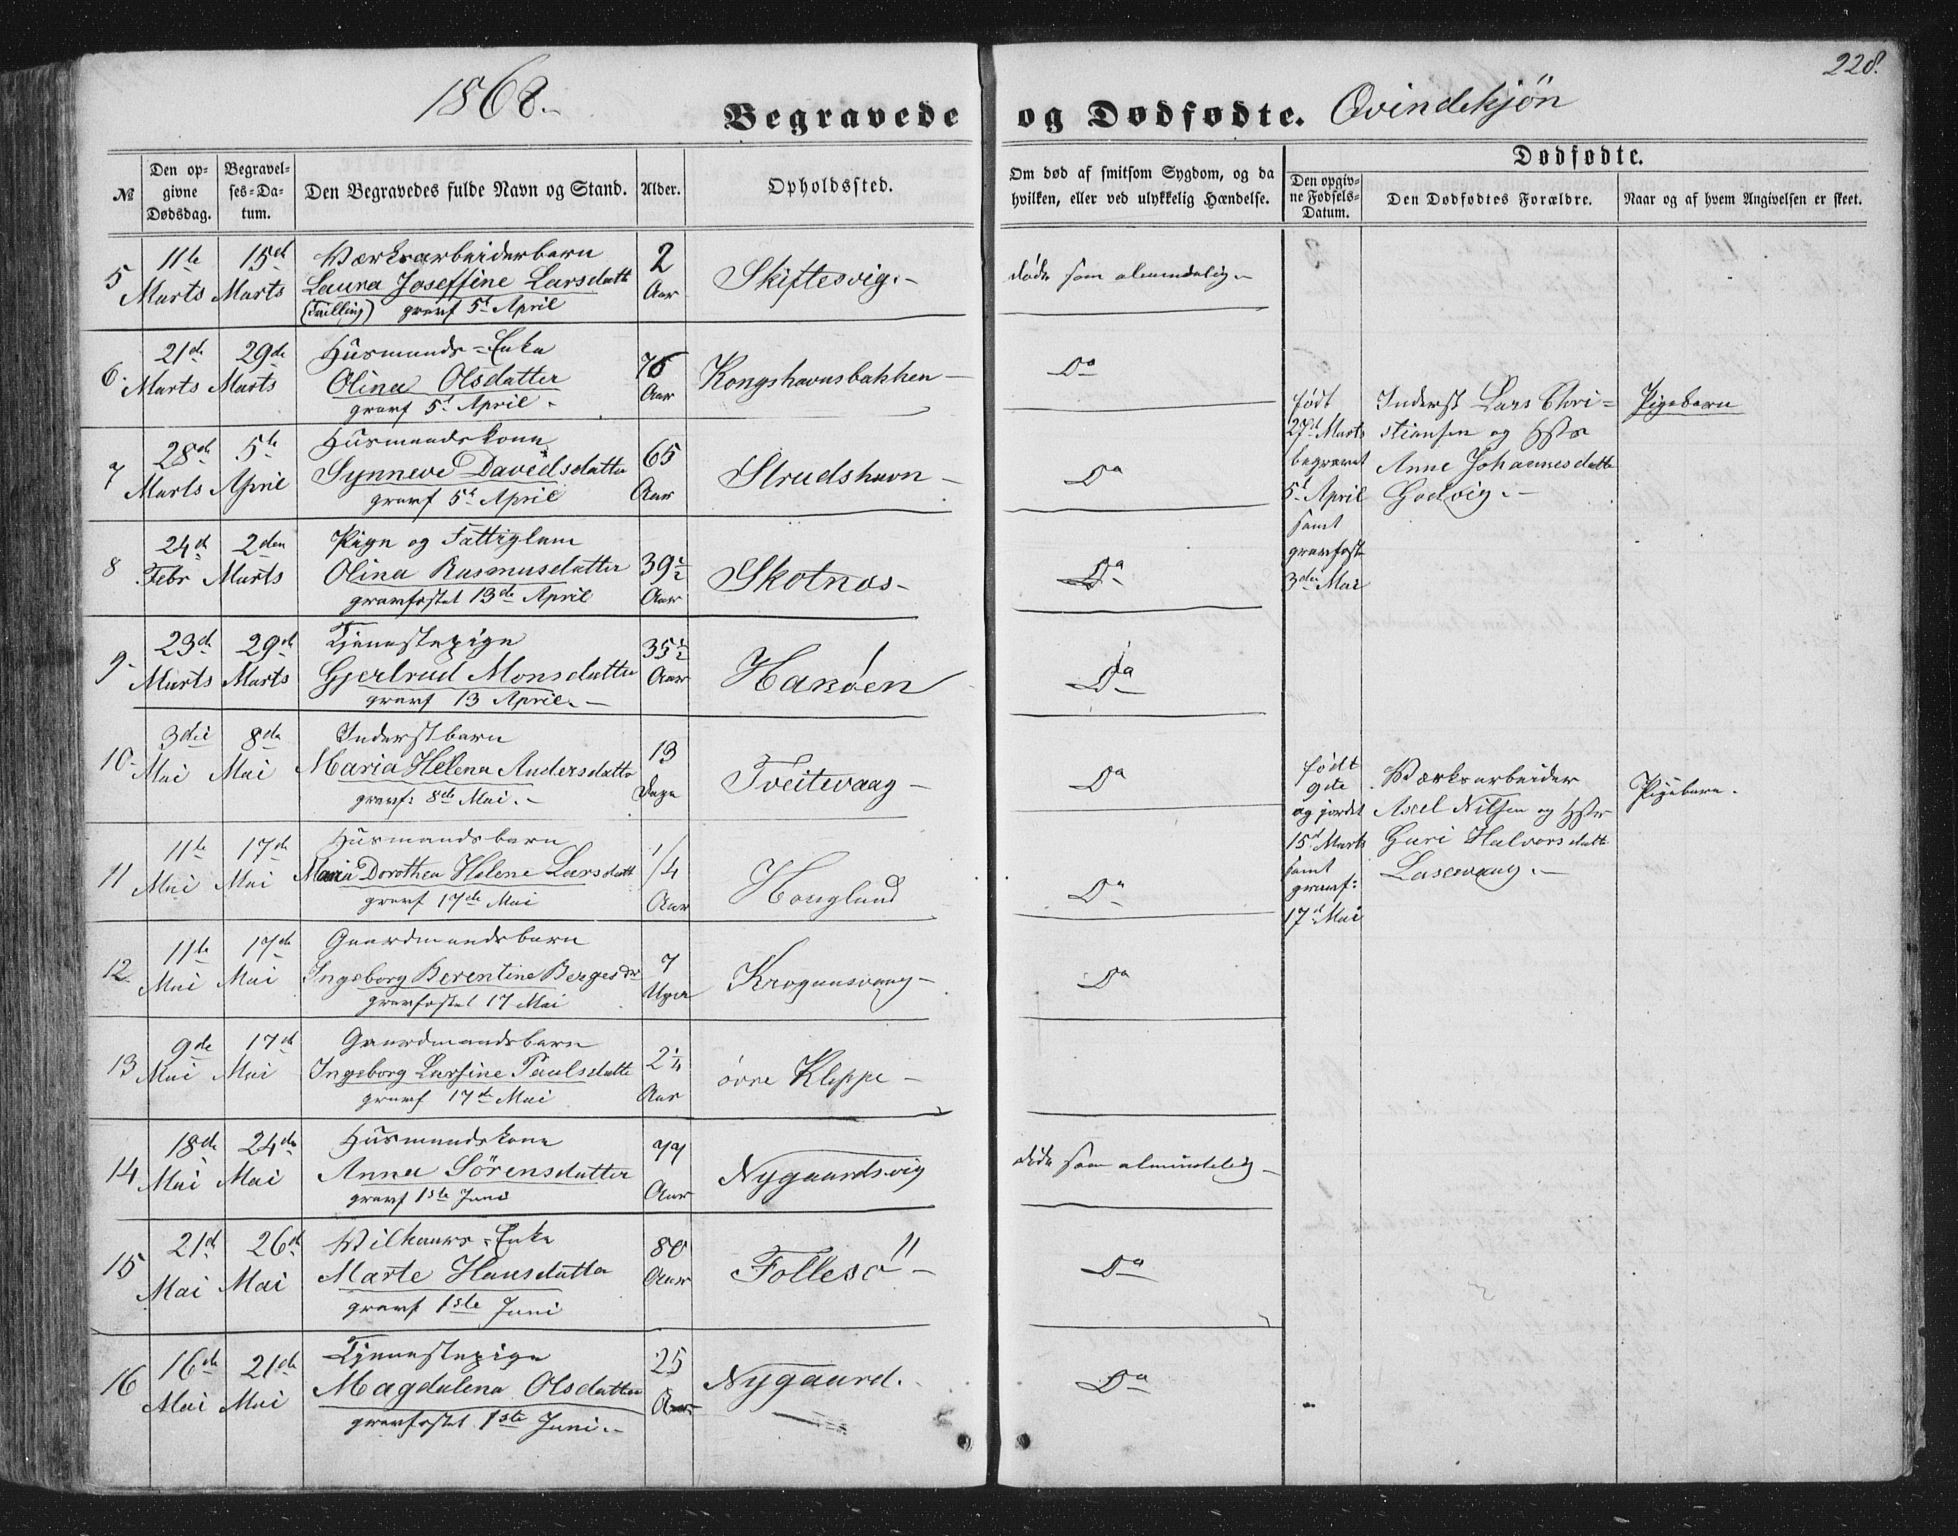 228.
1868.
Begravede og Dødfødte. Qvindekjön
№
Den opgivne Dødsdag.
Begravelses-Datum.
Den Begravedes fulde Navn og Stand.
Alder.
Opholdssted.
Om død af smitsom Sygdom, og da hvilken, eller ved ulykkelig Hændelse.
Dødfødte.
Den opgivne Fødsels-Datum.
Den Dødfødtes Forældre.
Naar og af hvem Angivelsen er skeet.
5 11te Marts 15d Marts Værksarbeiderbarn
Laura Joseffine Larsdatt 2 Aar Skiftesvig.- døde som almindelig.-
(Tvilling) gravf 5t April
6. 21de Marts 29de Marts Huusmands-Enke
Olina Olsdatter 76 Aar Kongshavnsbakken- Do
gravf 5t April.
7 28de Marts 5te April Huusmandskone
Synneve Davidsdatter 65 Aar Strudshavn- Do
gravf 5t April
8 24d Febr 2den Marts Pige og Fattiglem
Olina Rasmusdatter 39½ Aar Skotnes- Do
gravfæstet 13de April
9. 23d Marts 29de Marts Tjenestepige
Gjertrud Monsdatter 35½ Aar Hanöen Do
gravf 13 April.-
10. 3die Mai 8de Mai Inderstbarn
Maria Helena Andersdatte 13 Dage Tveitevaag- Do
gravf: 8de Mai.-
11 11te Mai 17de Mai Huusmandsbarn
Maria Dorothea Helene Larsdatt 1/4 Aar Honglund Do
gravf 17de Mai
12. 11te Mai 17de Mai Gaardmandsbarn
Ingeborg Berentine Bergesdr 7 Uger Krogaasvaag- Do
gravfæstet 17 Mai
13 9de Mai 17d Mai Gaardmandsbarn
Ingeborg Larsine Paulsdatte 2¼ Aar övre Kleppe-
gravf 17de Mai
14 18de Mai 24de Mai Huusmandskone
Anna Sörensdatter 77 Aar Nygaardsvig døde som almindelig-
gravf 1ste Juni
15 21d Mai 26d Mai Vilkaars-Enke
Marte Hansdatter 80 Aar Follesö- Do
gravf 1ste Juni
16 16de Mai 21de Mai Tjenestepige
Magdalena Olsdatter 25 Aar Nygaard. Do
gravfæstet 1ste Juni.-
født
27d Marts
begravet
5t April
samt
gravfæst
3die Mai
Inderst Lars Chri-
stiansen og Hstr
Anne Johannesdatte
Godvig.-
Pigebarn
født
9de
og jordet
15d Marts
samt
gravf:
17d Mai
Værksarbeider
Axel Nilsen og Hstr
Guri Halvorsdatt
Pigebarn.